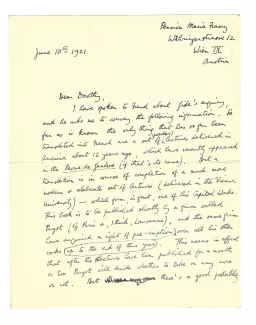 Pension Maria Franz
Währingerstrasse 12
Wien IX
Austria
June 10th 1921
Dear Dorothy,
I have spoken to Freud about Gide's enquiry,
and he asks me to convey the following information. So
far as is known the only thing that has so far been
translated into French are a set of (5) lectures delivered in
America about 12 years ago, which have recently appeared
in the Revue de Genève (if that's its name). But a
translation is in course of completion of a much more
modern & elaborate set of lectures (delivered in the Vienna
University) — which form, in fact, one of his Capital Works.
This book is to be published shortly by a firm called
Payot (of Paris & , I think, Lausanne), and the same firm
have acquired a right of pre-emption over all his other
works (up to the end of this year). This means in effect
that after the lectures have been published for a month
or two Payot will decide whether to take on any more
or not. But there's a good probability